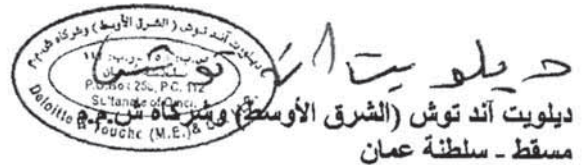 ديلويت آند توش (الشرق الأوسط) وشركاه ش.م.م
P.O.Box 258, P.C. 112
Sultanate of Oman
Deloitte & Touche (M.E.) &
ديلويت آند توش
ديلويت آند توش (الشرق الأوسط) وشركاه ش.م.م
مسقط - سلطنة عمان